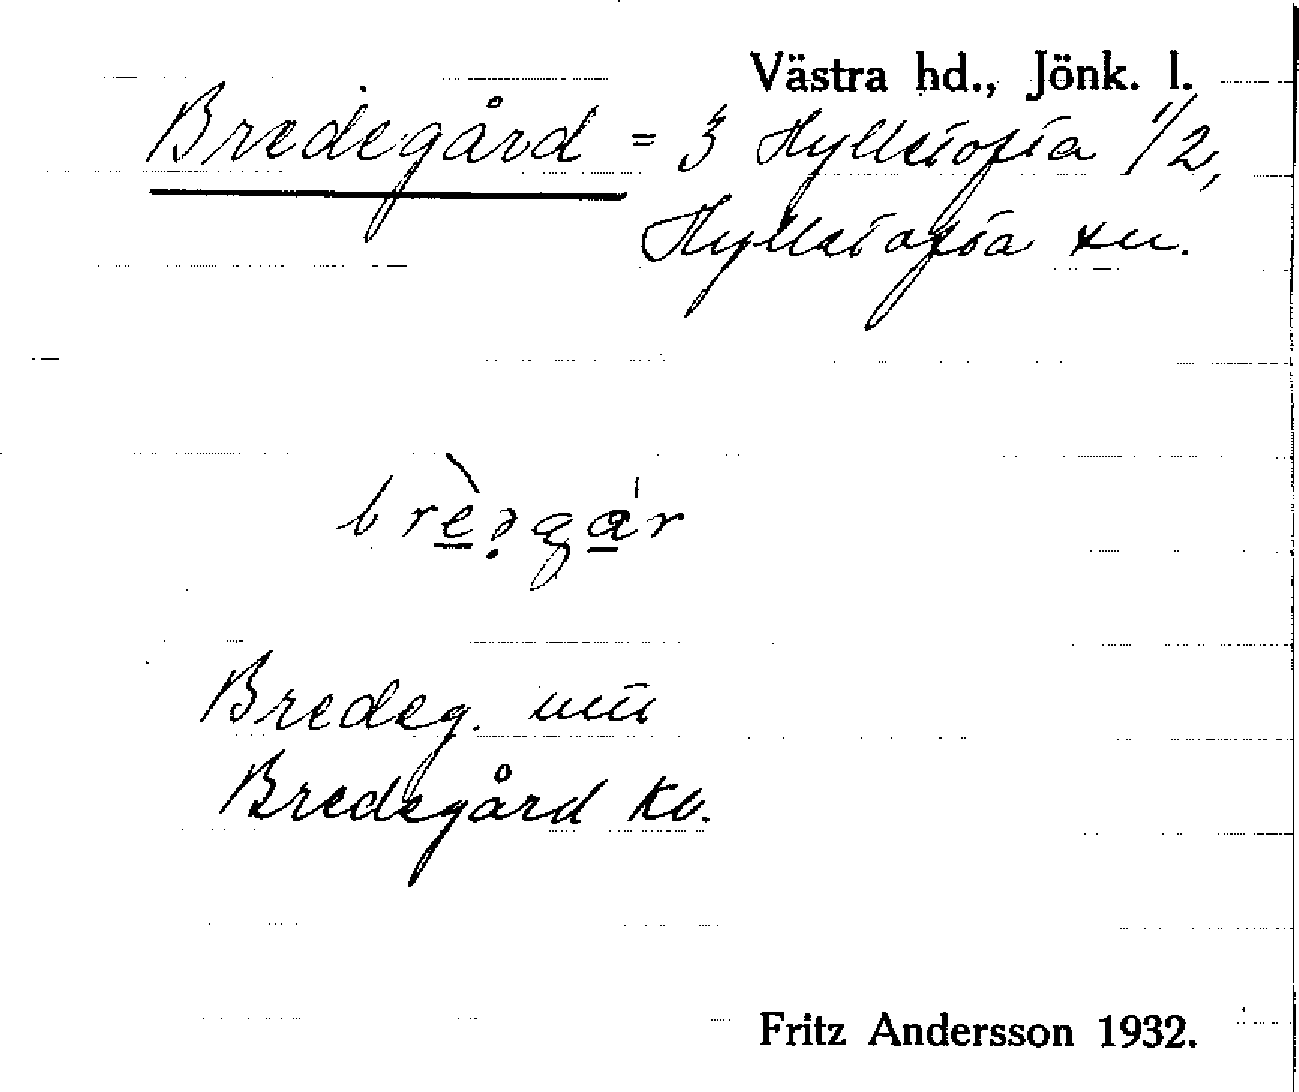 Västra hd., Jönk. l.
Bredegård = 3 Hylletofta 1/2,
Hylletofta sn.
brèǝgár
Bredeg. uui
Bredegård Kb.
Fritz Andersson 1932.